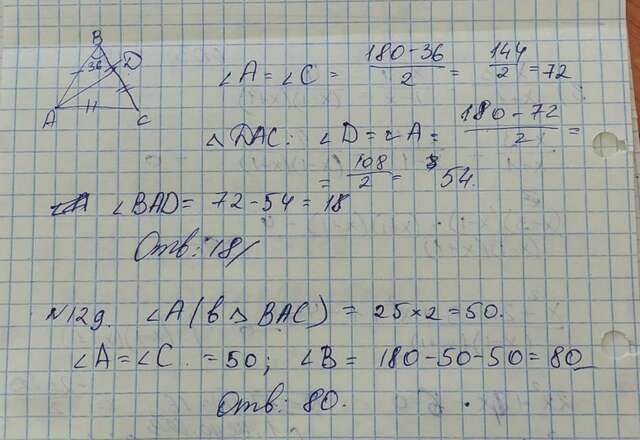 B
36
D
A
C
∠A = ∠C = (180-36)/2 = 144/2 = 72
△DAC: ∠D = ∠A = (180-72)/2 =
= 108/2 = 54.
∠BAD = 72-54 = 18
Отв: 18/
N129. ∠A (в △ BAC) = 25×2=50.
∠A=∠C. =50; ∠B = 180-50-50=80
Отв: 80.